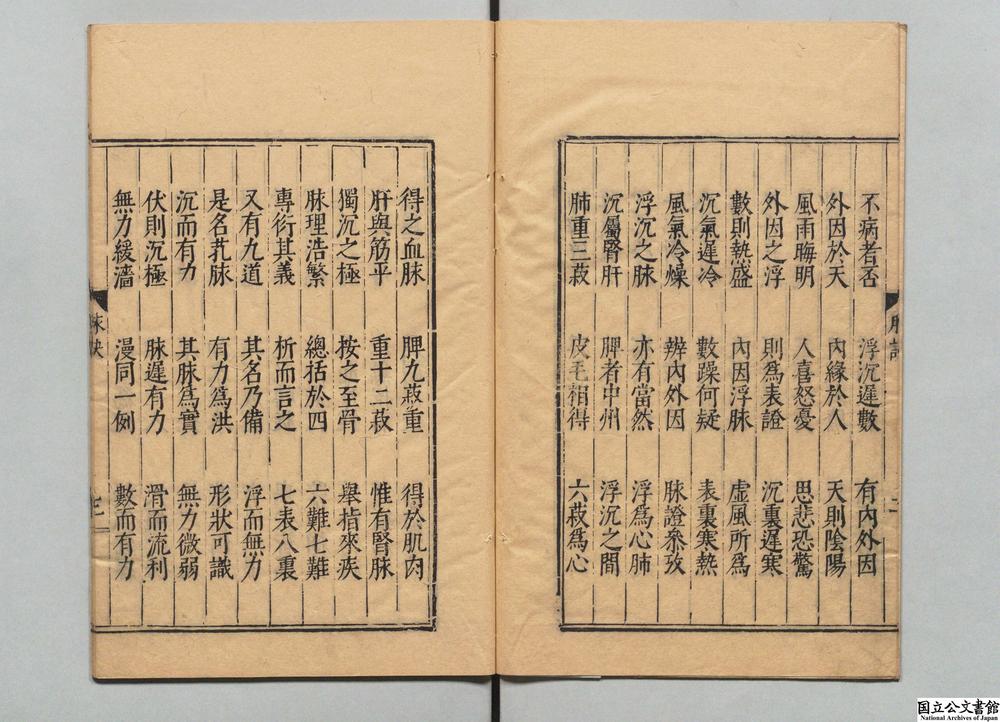 不病者否 浮沉遲數 有內外因
外因於天 內緣於人 天則陰陽
風雨晦明 人喜怒憂 思悲恐驚
外因之浮 則爲表證 沉裏遲寒
數則熱盛 內因浮脉 虛風所爲
沉氣遲冷 數躁何疑 表裏寒熱
風氣冷燥 辨內外因 脉證參攷
浮沉之脉 亦有當然 浮爲心肺
沉屬腎肝 脾者中州 浮沉之間
肺重三菽 皮毛相得 六菽爲心
得之血脉 脾九菽重 得於肌肉
肝與筋平 重十二菽 惟有腎脉
獨沉之極 按之至骨 舉指來疾
脉理浩繁 總括於四 六難七難
專衍其義 析而言之 七表八裏
又有九道 其名乃備 浮而無力
是名芤脉 有力爲洪 形狀可識
沉而有力 其脉爲實 無力微弱
伏則沉極 脉遲有力 滑而流利
無力緩濇 漫同一例 數而有力
脉訣
三
国立公文書館
National Archives of Japan